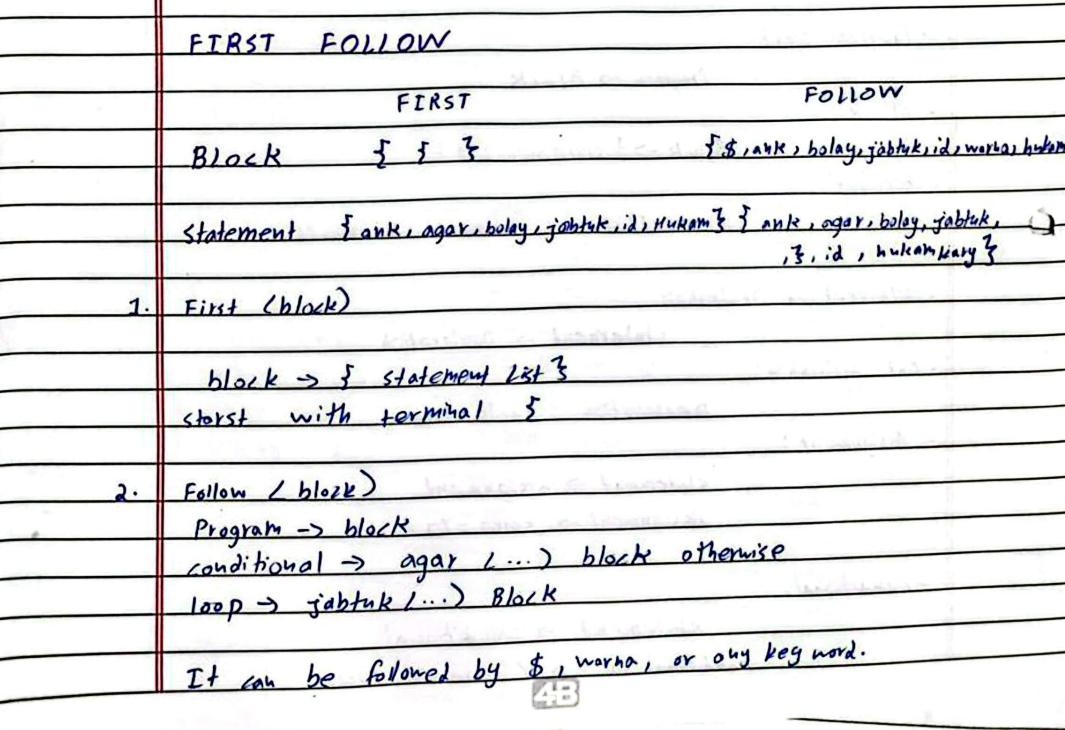 FIRST FOLLOW
FIRST FOLLOW
Block { { } {$, ank, bolay, jabtuk, id, warha, hukam
statement {ank, agar, bolay, jabtuk, id, Hukam} { ank, agar, bolay, jabtuk,
, }, id, hukamkary}
1. First (block)
block → { statement List }
storst with terminal {
2. Follow (block)
Program → block
conditional → agar (...) block otherwise
loop → jabtuk (...) Block
It can be followed by $, warna, or any key word.
4B